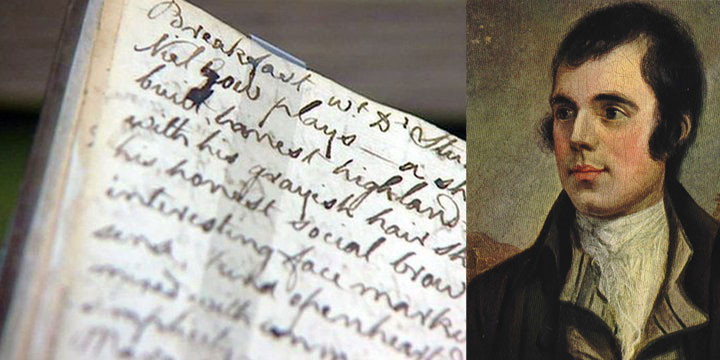 Breakfast wt Dr Stew
Niel Gow plays — a sh
built, honest highland
with his grayish hair sh
his honest social brow
interesting face marki
sense, kind openheart
mixed with unm
simplicity